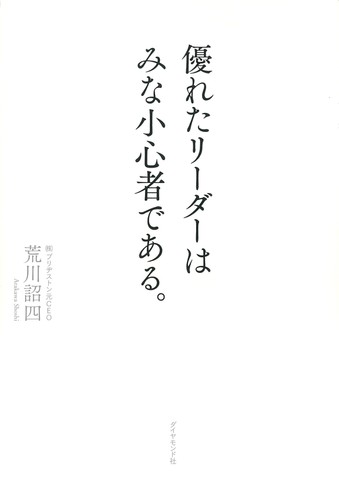 優れたリーダーは
みな小心者である。
㈱ブリヂストン元CEO
荒川詔四
Arakawa Shoshi
ダイヤモンド社